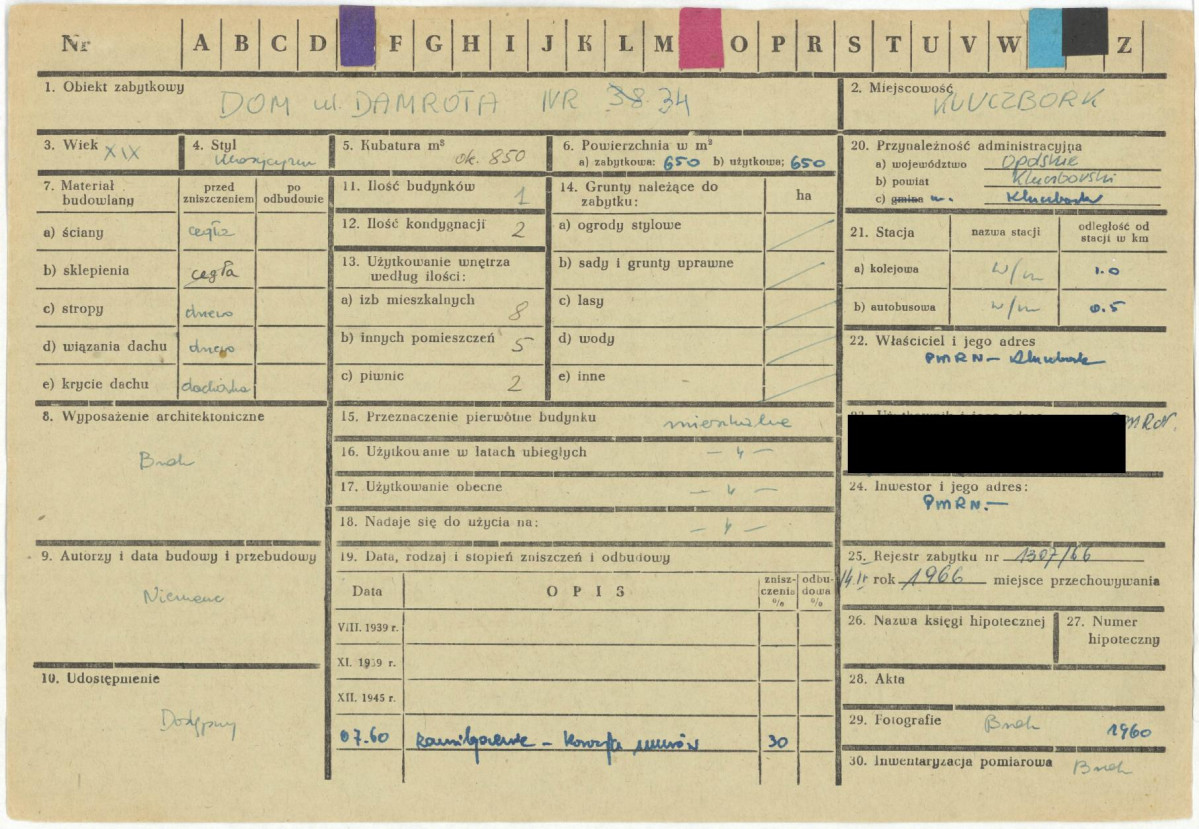 Nr A B C D F G H I J K L M O P R S T U V W Z
1. Obiekt zabytkowy
DOM ul. DAMROTA NR 38 34
2. Miejscowość
KLUCZBORK
3. Wiek XIX
4. Styl
Klasycyzm
5. Kubatura m³
ok. 850
6. Powierzchnia w m²
a) zabytkowa: 650 b) użytkowa; 650
7. Materiał budowlany
przed zniszczeniem
po odbudowie
a) ściany cegła
b) sklepienia cegła
c) stropy drewo
d) wiązania dachu drewo
e) krycie dachu dachówka
8. Wyposażenie architektoniczne
Brak
9. Autorzy i data budowy i przebudowy
Nieznane
10. Udostępnienie
Dostępny
11. Ilość budynków 1
12. Ilość kondygnacji 2
13. Użytkowanie wnętrza
według ilości:
a) izb mieszkalnych 8
b) innych pomieszczeń 5
c) piwnic 2
14. Grunty należące do
zabytku:
ha
a) ogrody stylowe
b) sady i grunty uprawne
c) lasy
d) wody
e) inne
15. Przeznaczenie pierwotne budynku mieszkalne
16. Użytkowanie w latach ubiegłych — " —
17. Użytkowanie obecne — " —
18. Nadaje się do użycia na: — " —
19. Data, rodzaj i stopień zniszczeń i odbudowy
Data
OPIS
znisz-
czenia
%
odbu-
dowa
%
VIII. 1939 r.
XI. 1939 r.
XII. 1945 r.
07.60 murów 30
20. Przynależność administracyjna
a) województwo Opolskie
b) powiat Kluczborski
c) gmina m. Kluczbork
21. Stacja
nazwa stacji
odległość od
stacji w km
a) kolejowa w/m 1.0
b) autobusowa w/m 0.5
22. Właściciel i jego adres
PMRN – Kluczbork
PMRN.
24. Inwestor i jego adres:
PMRN.—
25. Rejestr zabytku nr 1307/66
rok 1966 miejsce przechowywania
26. Nazwa księgi hipotecznej
27. Numer
hipoteczny
28. Akta
29. Fotografie Brak 1960
30. Inwentaryzacja pomiarowa Brak